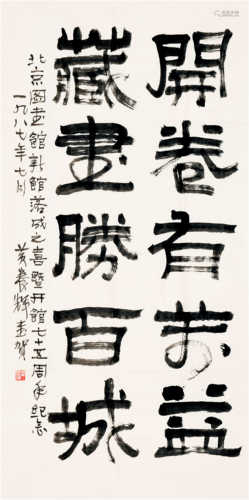 開卷有益
藏書勝百城
北京圖書館新館落成之喜暨开館七十五周年紀念
一九八七年七月
黄養輝書賀